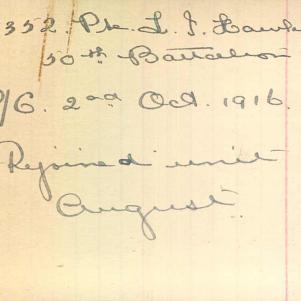 352. Pte. L. J. Hawk
50th Battalion
/6. 2nd Oct. 1916.
Rejoined unit
August